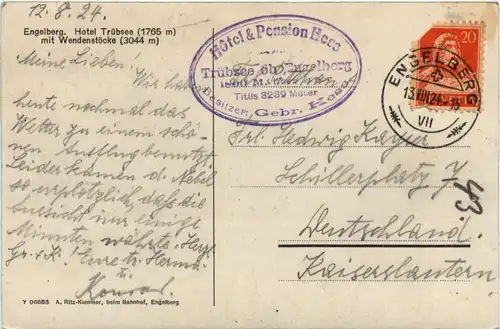 12.8.24.
Engelberg. Hotel Trübsee (1765 m)
mit Wendenstöcke (3044 m)
Meine Lieben!
Wir haben
heute nochmal das
Wetter zu einem schö-
nen Ausflug benutzt.
Leider kamen d. Nebel
so urplötzlich, daß die
Aussicht nur einige
Minuten währte. Herzl.
Gr. + K. Eure tr. Herma
u.
Konrad.
Y 06653 A. Ritz-Kummer, beim Bahnhof, Engelberg
Hôtel & Pension Hess
Trübsee ob Engelberg
1800 M.
Titlis 3239 Meter
Besitzer, Gebr. Hess
20
ENGELBERG
13.VIII.24.-15
VII
Frl. Hedwig Kayser
Schillerplatz 7
43.
Deutschland.
Kaiserslautern.